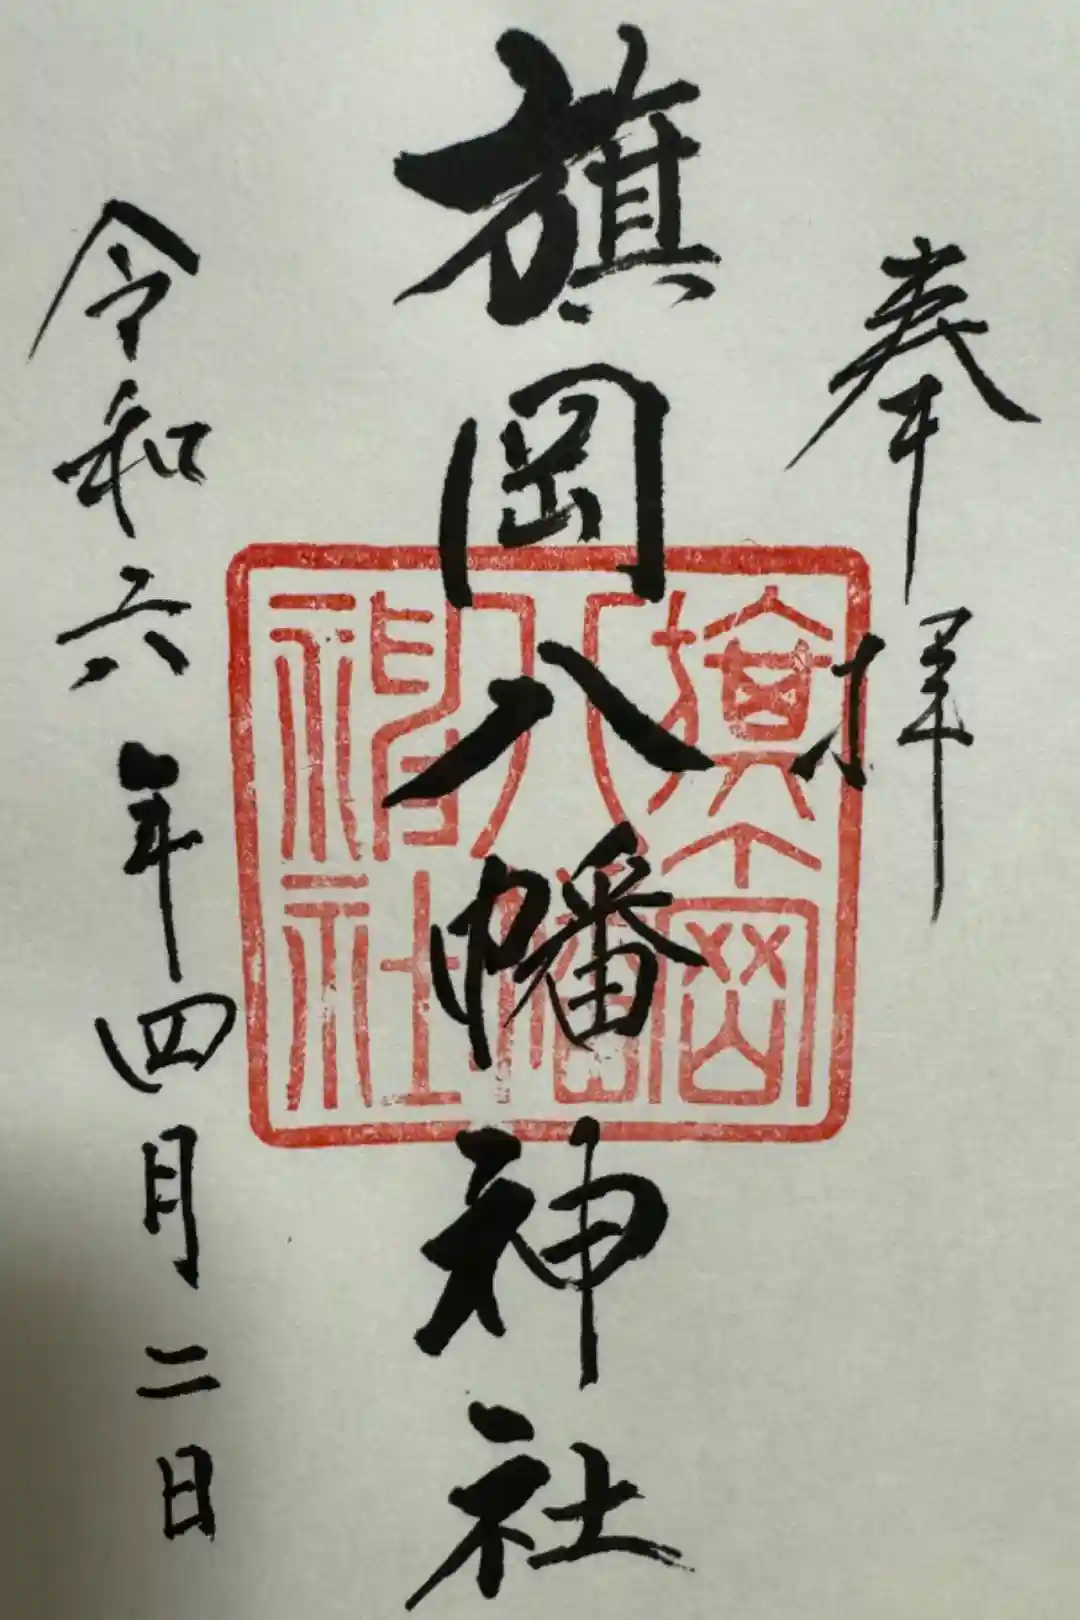 奉拝
旗岡八幡神社
旗岡
八幡
神社
令和六年四月二日